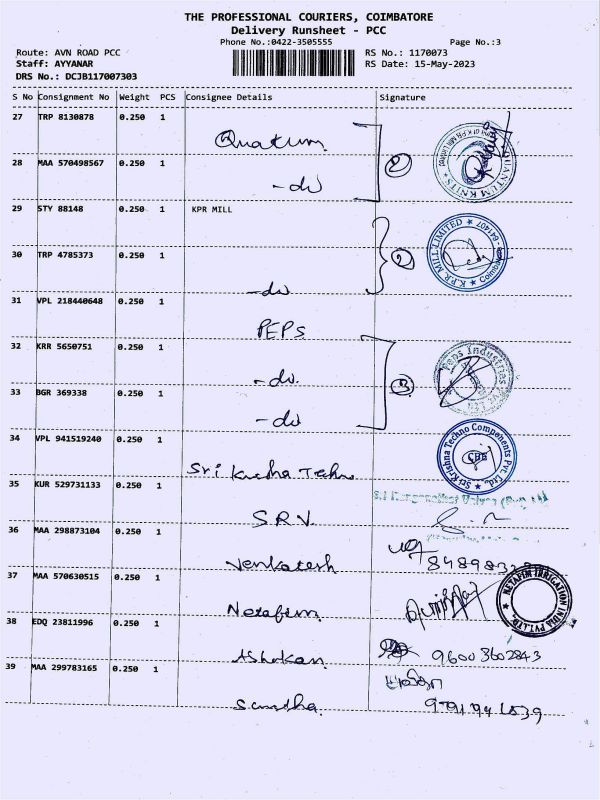 THE PROFESSIONAL COURIERS, COIMBATORE
Delivery Runsheet - PCC
Phone No.:0422-3505555
Page No.:3
Route: AVN ROAD PCC
RS No.: 1170073
Staff: AYYANAR
RS Date: 15-May-2023
DRS No.: DCJB117007303
S No Consignment No Weight PCS Consignee Details Signature
27 TRP 8130878 0.250 1
Quatum
28 MAA 570498567 0.250 1
- do
29 STY 88148 0.250 1 KPR MILL
K.P.R. MILL LIMITED
30 TRP 4785373 0.250 1
2
- do
31 VPL 218440648 0.250 1
PEPS
32 KRR 5650751 0.250 1
Peps Industries Pvt Ltd
- do.
33 BGR 369338 0.250 1
3
- do
34 VPL 941519240 0.250 1
Sri Krishna Techno Components Pvt. Ltd.,
CBE
Sri Krishna Techno
35 KUR 529731133 0.250 1
S.R.V.
36 MAA 298873104 0.250 1
Venkatesh
37 MAA 570630515 0.250 1
NETAFIM IRRIGATION INDIA PVT.LTD.
Netafim
38 EDQ 23811996 0.250 1
Ashokan
96003602843
39 MAA 299783165 0.250 1